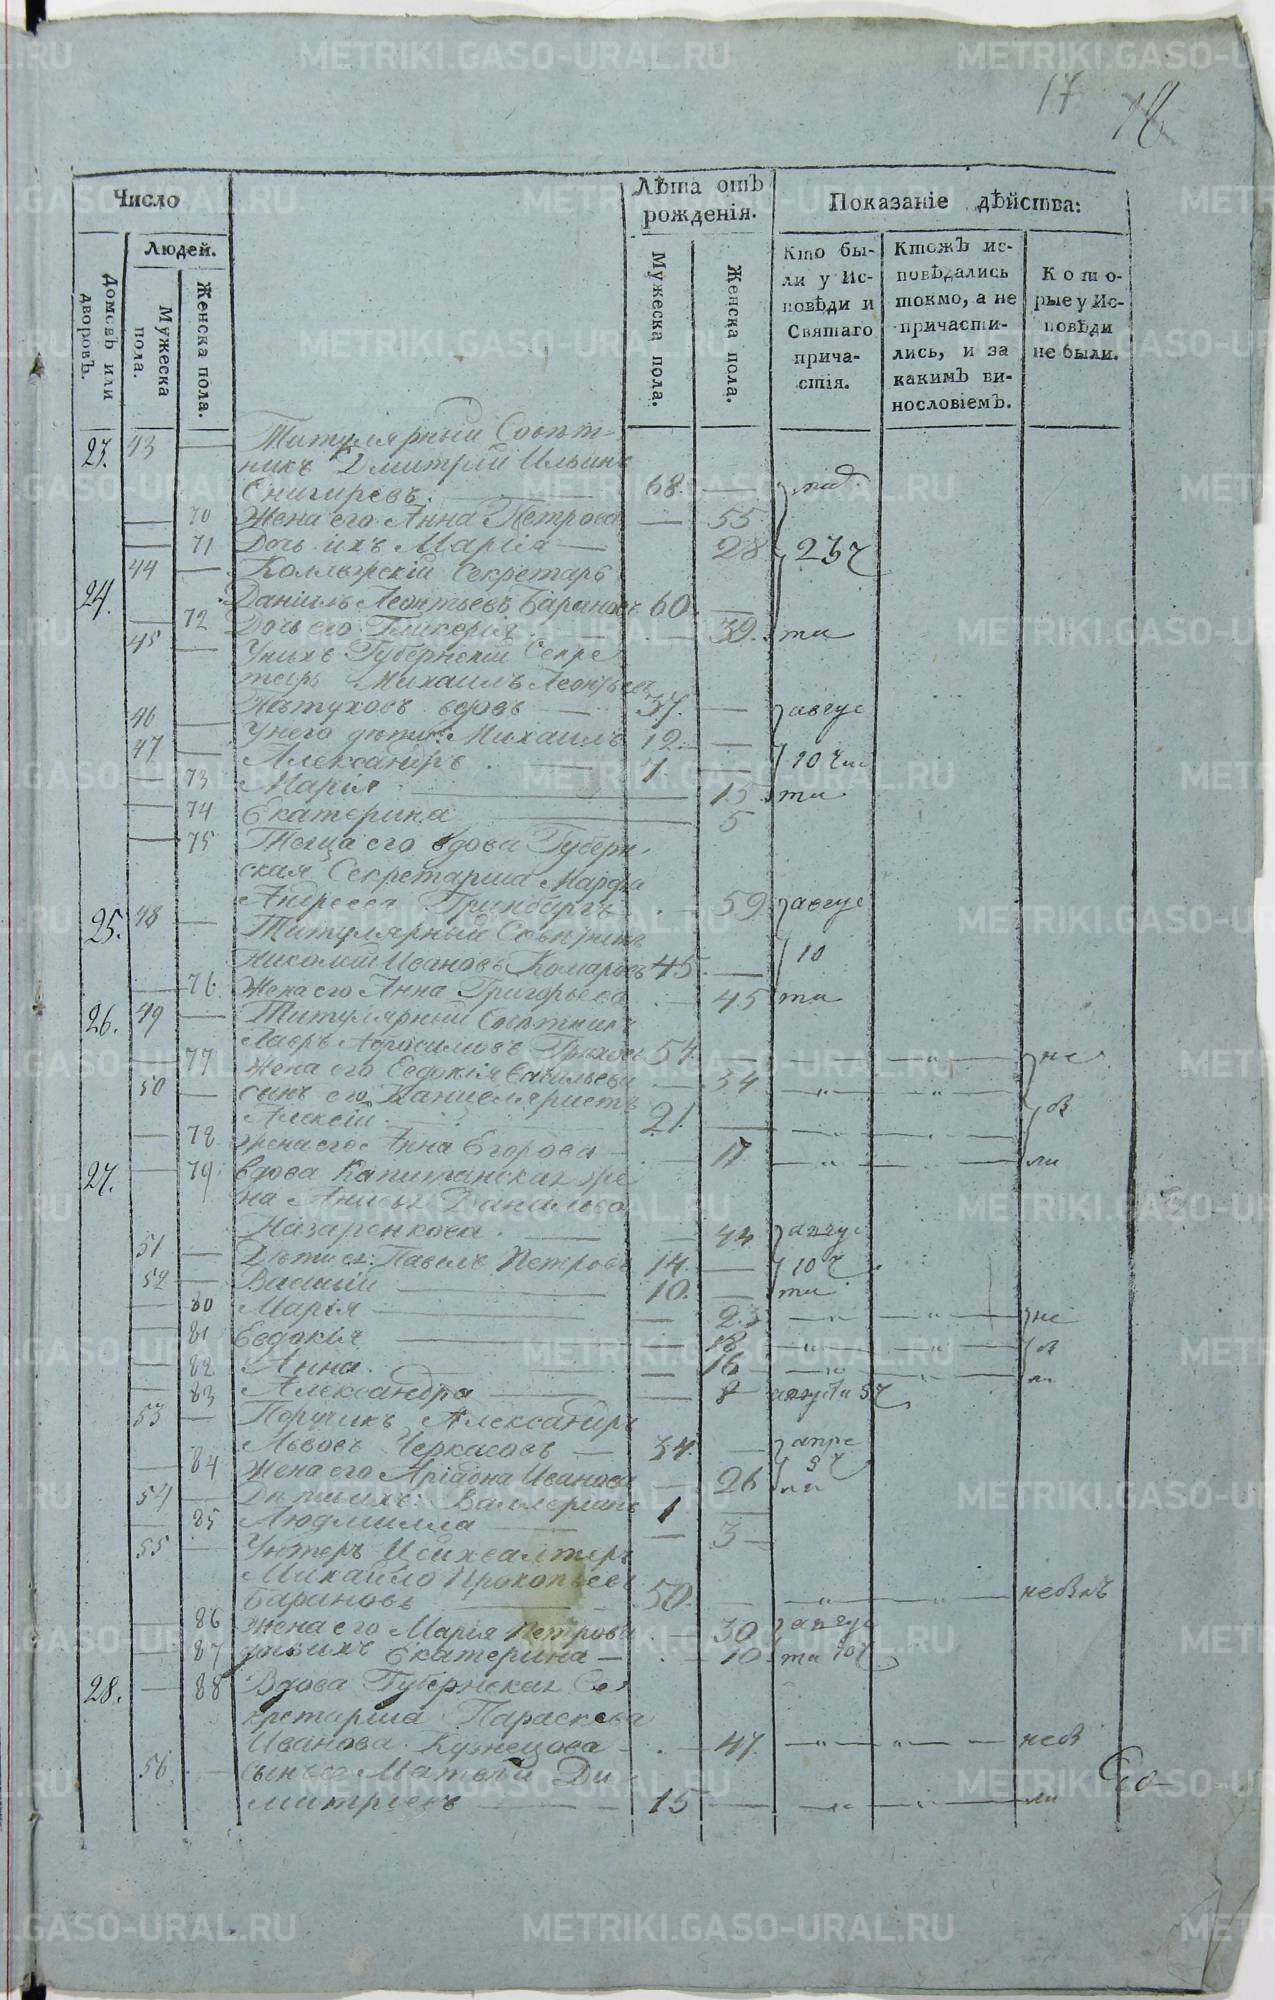 17 18
Число
Лѣта отъ рожденія.
Показаніе дѣйства:
Людей.
Домовъ или дворовъ.
Мужеска пола.
Женска пола.
Мужеска пола.
Женска пола.
Кто были у Исповѣди и Святаго причастія.
Ктожъ исповѣдались токмо, а не причастились, и за какимъ винословіемъ.
Которые у Исповѣди не были.
23. 43 — Титулярный Совѣт-
никъ Дмитрій Ильинъ
Снигиревъ. — 68. —
— 70 Жена его Анна Петрова — 55
— 71 Дочь ихъ Марія — 28 23 ч
24. 44 — Коллежскій Секретарь
Даніилъ Леонтьевъ Барановъ 60 —
— 72 Дочь его Гликерія — 39. та
45 — У нихъ Губернскій Секре
тарь Михаилъ Леонтьевъ
Пѣтуховъ вдовъ — 37. — авгус
46 — У него дѣти: Михаилъ 12. —
47 — Александръ — 7. — 10 чис
— 73 Марія — 15 та
— 74 Екатерина — 5
— 75 Теща его вдова Губерн-
ская Секретарша Марфа
Андреева — 59 авгус
25. 48 — Титулярный Совѣтникъ
Николай Ивановъ Комаровъ 45. — 10
— 76. Жена его Анна Григорьева — 45 та
26. 49 — Титулярный Совѣтникъ
Лавръ 54. — не
— 77 Жена его Евдокія Васильева — 54
50 — сынъ его Канцеляристъ
Алексій. 21. — в
— 78 жена его Анна Егорова — 17 — ли
27. — 79 Вдова Капитанская же
на Анисья Данилова
Назаренкова. — 44 авгус
51 — Дѣти ея: Павелъ Петровъ 14. — 10 ч
52 — Василій — 10. — та
— 80 Марія — 23 — не
— 81 Евдокія — 18 — в
— 82 Анна. — 16
— 83 Александра — 8 августа 5 ч
53 — Поручикъ Александръ
Львовъ Черкасовъ — 34. — апре
— 84 Жена его Аріадна Иванова — 26 ли
54 — Дѣти ихъ: Валлеріанъ 1 —
— 85 Людмилла — 3 —
55 — Унтеръ Цейхвахтеръ
Михайло Прокопьевъ
Бариновъ — 50. — небылъ
— 86 Жена его Марія Петрова — 30 авгус
— 87 дочь ихъ Екатерина — 10 та 10 ч
28. — 88 Вдова Губернская Се-
кретарша Параскева
Иванова Кузнецова — 47. — неб
56. — сынъ ея Матвѣй Ди-
митріевъ — 15 — ли